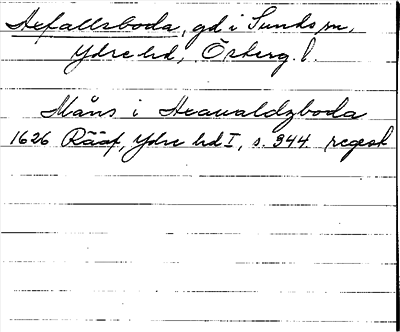 Axfallsboda, gd i Sunds sn,
Ydre hd, Österg l.
Måns i Axawaldzboda
1626 Rääf, Ydre hd I, s. 344 regest